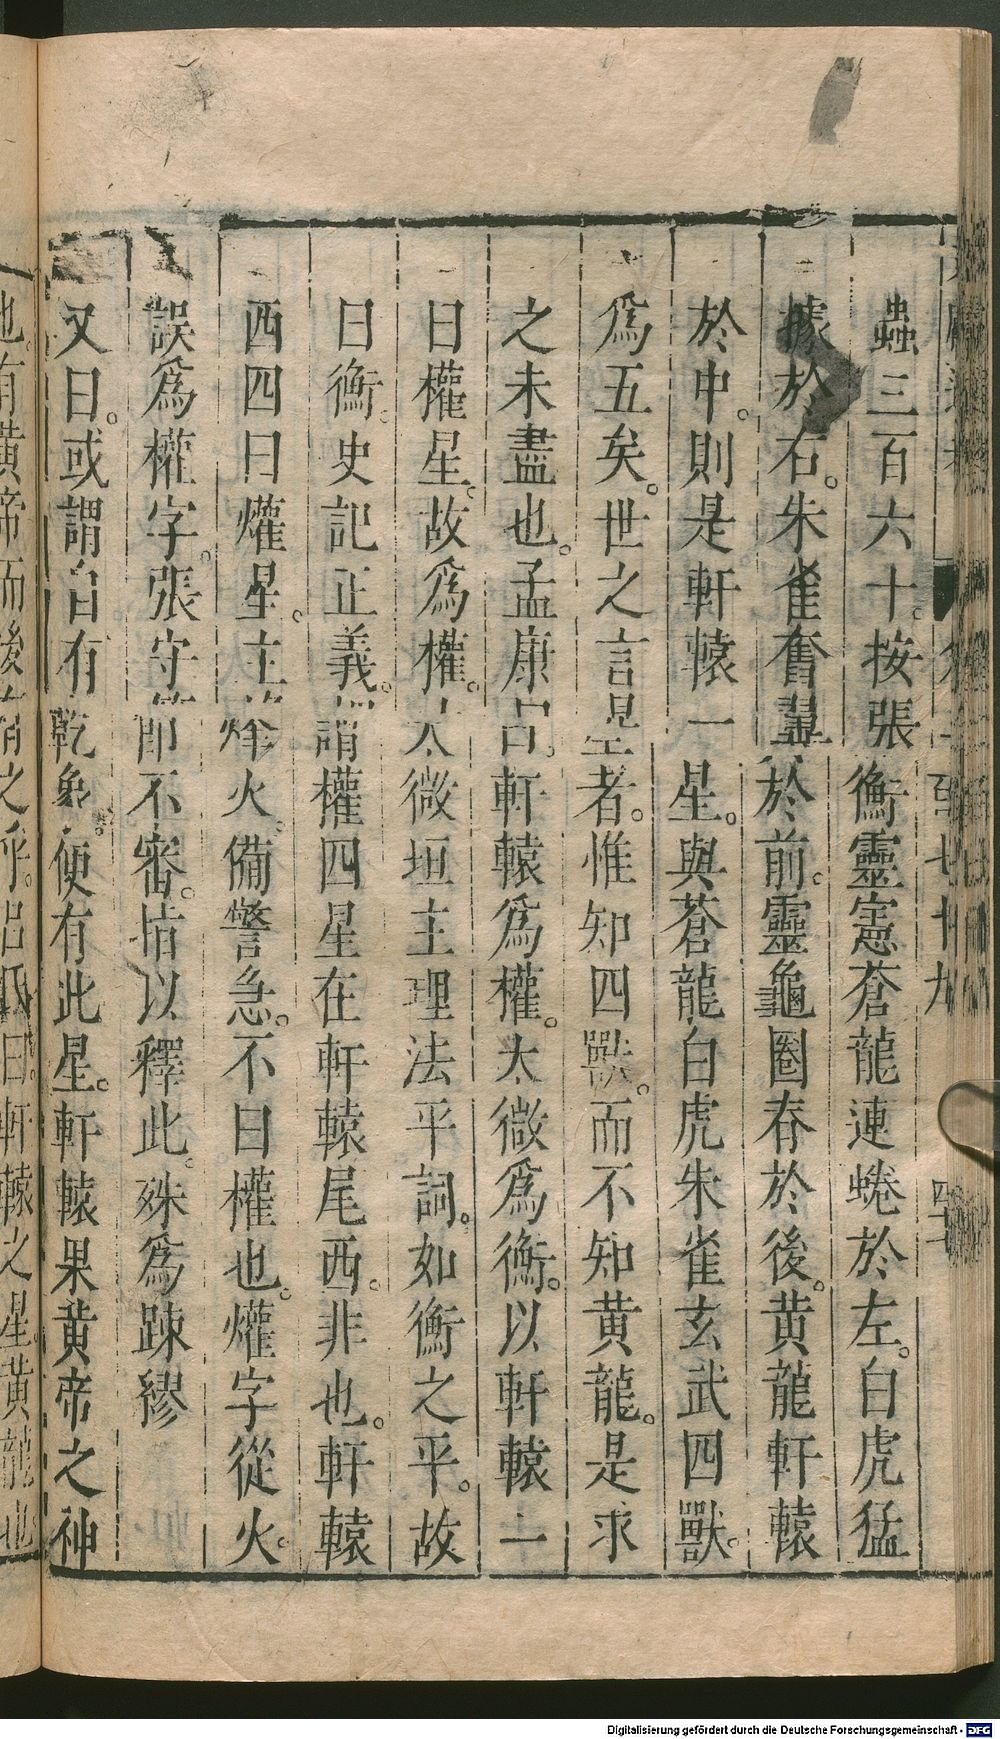 蟲三百六十。按張衡靈憲蒼龍連蜷於左。白虎猛
據於右。朱雀奮翼於前。靈龜圈春於後。黃龍軒轅
於中。則是軒轅一星。與蒼龍白虎朱雀玄武四獸。
爲五矣。世之言星者。惟知四獸。而不知黃龍。是求
之未盡也。孟康曰。軒轅爲權。太微爲衡。以軒轅一
曰權星。故爲權。太微垣主理法平詞。如衡之平。故
曰衡。史記正義。謂權四星在軒轅尾西。非也。軒轅
西四曰爟星。主烽火。備警急。不曰權也。爟字從火。
誤爲權字。張守節不審。指以釋此。殊爲踈繆
又曰。或謂自有乾象。便有此星。軒轅果黃帝之神
也。有黃帝而後有之乎。呂氏曰。軒轅之星黃龍也
至七十九
Digitalisierung gefördert durch die Deutsche Forschungsgemeinschaft - DFG